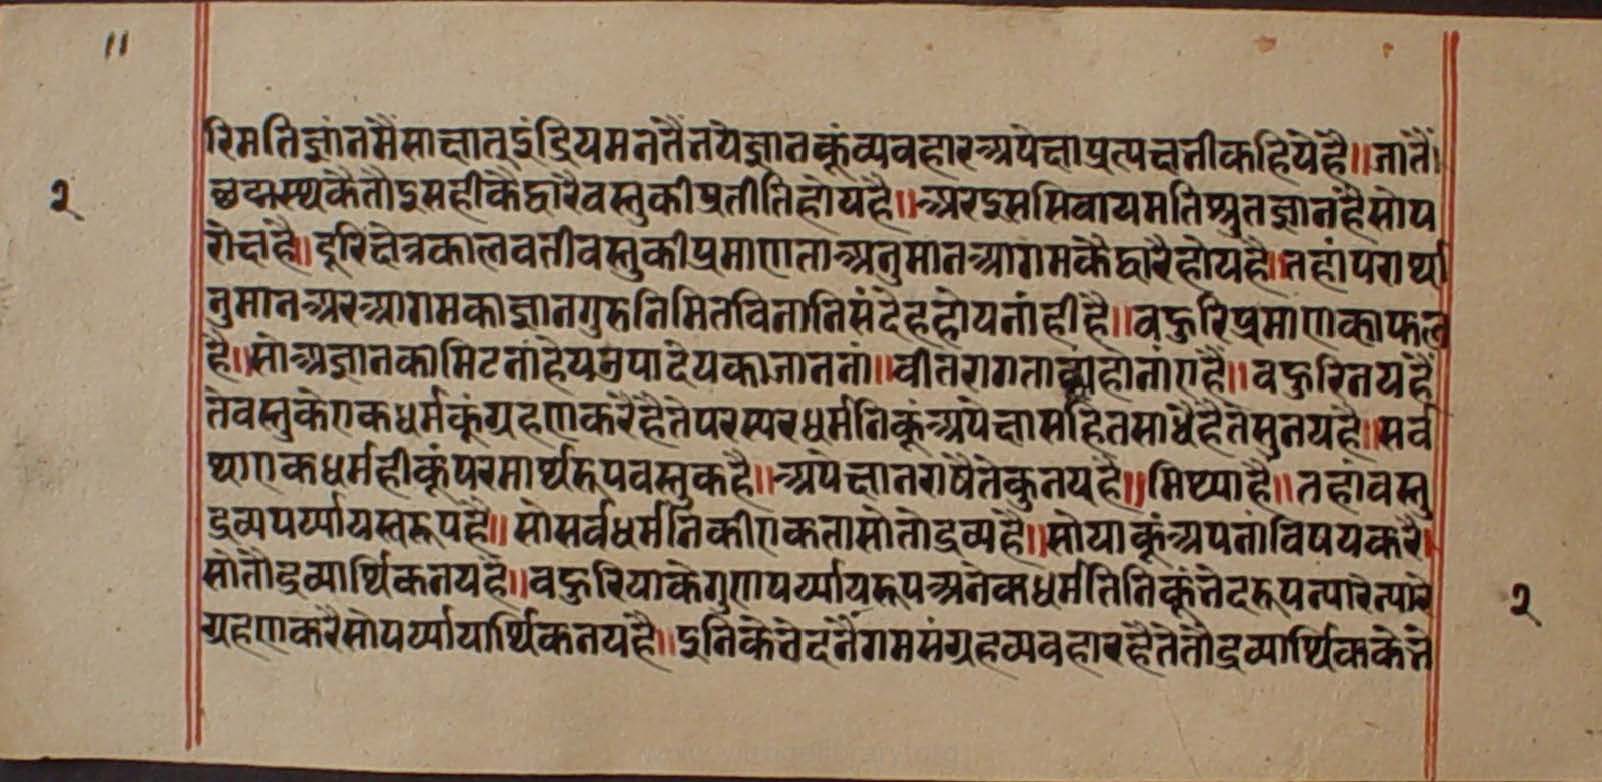 ॥
रिमतिज्ञांनमैसाक्षात्इंद्रियमनतैंनयेज्ञानकूंव्यवहारअपेक्षाप्रत्यक्षनीकहियेहै॥जातैं।
छद्मस्थकैतौइसहीकैद्वारैवस्तुकीप्रतीतिहोयहै॥अरइससिवायमतिश्रुतज्ञानहैसोप
२
रोक्षहै॥दूरिक्षेत्रकालवर्तीवस्तुकीप्रमाणताअनुमानआगमकैद्वारैहोयहै॥तहांपरार्था
नुमानअरआगमकाज्ञानगुरुनिमितविनानिसंदेहहोयनांहीहै॥वहुरिप्रमाणकाफल
है॥सोअज्ञानकामिटनांहेयउपादेयकाजाननां॥वीतरागताकाहोनांएहै॥वहुरिनयहैं
तेवस्तुकेएकधर्मकूंग्रहणकरैहैतेपरस्परधर्मनिकूंअपेक्षासहितसाधैहैतेसुनयहै॥सर्व
थाएकधर्महीकूंपरमार्थरूपवस्तुकहै॥अपेक्षानराषैतेकुनयहै॥मिथ्याहै॥तहांवस्तु
द्रव्यपर्य्यायस्वरूपहै॥सोसर्वधर्मनिकीएकतासोतोद्रव्यहै॥सोयाकूंअपनांविषयकरै।
सोतौद्रव्यार्थिकनयहै॥वहुरियाकेगुणपर्य्यायरूपअनेकधर्मतिनिकूंभेदरूपन्यारेन्यारे
ग्रहणकरैसोपर्य्यायार्थिकनयहै॥इनिकेभेदनैगमसंग्रहव्यवहारहैतेतौद्रव्यार्थिककेभे
२